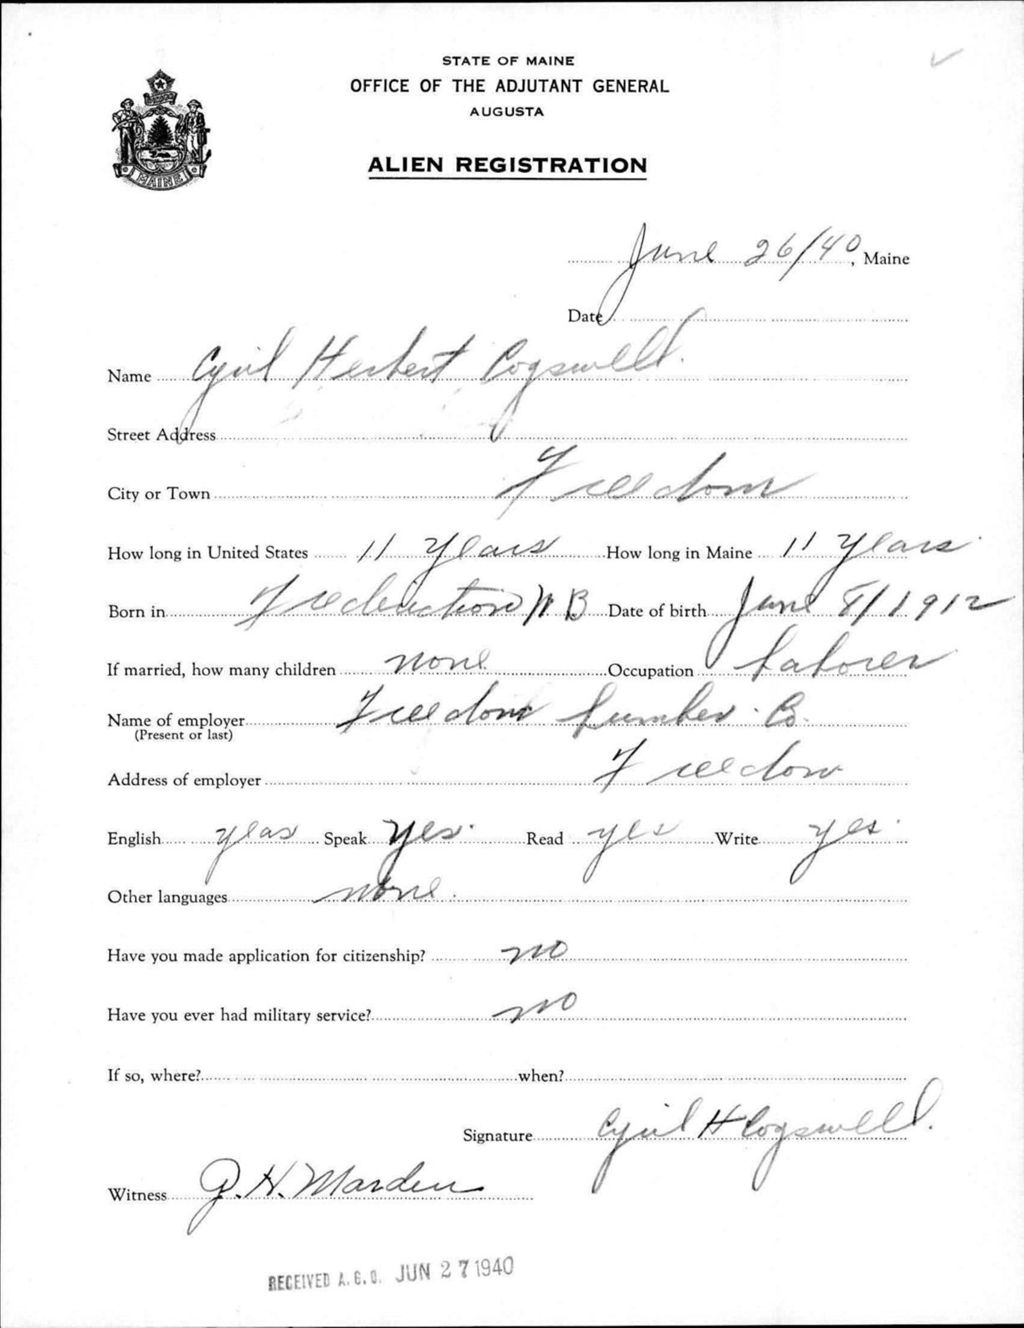 STATE OF MAINE
OFFICE OF THE ADJUTANT GENERAL
AUGUSTA
ALIEN REGISTRATION
MAINE
June 26/40, Maine
Date
Name Cyril Herbert Cogswell.
Street Address
City or Town Freedom
How long in United States 11 years How long in Maine 11 years.
Born in Fredericton N B Date of birth June 8/1912
If married, how many children none Occupation Laborer
Name of employer Freedom Lumber Co.
(Present or last)
Address of employer Freedom
English yeas Speak yes. Read yes Write yes.
Other languages none.
Have you made application for citizenship? no
Have you ever had military service? no
If so, where? when?
Signature Cyril H Cogswell.
Witness H. Marden
RECEIVED A.G.O. JUN 27 1940